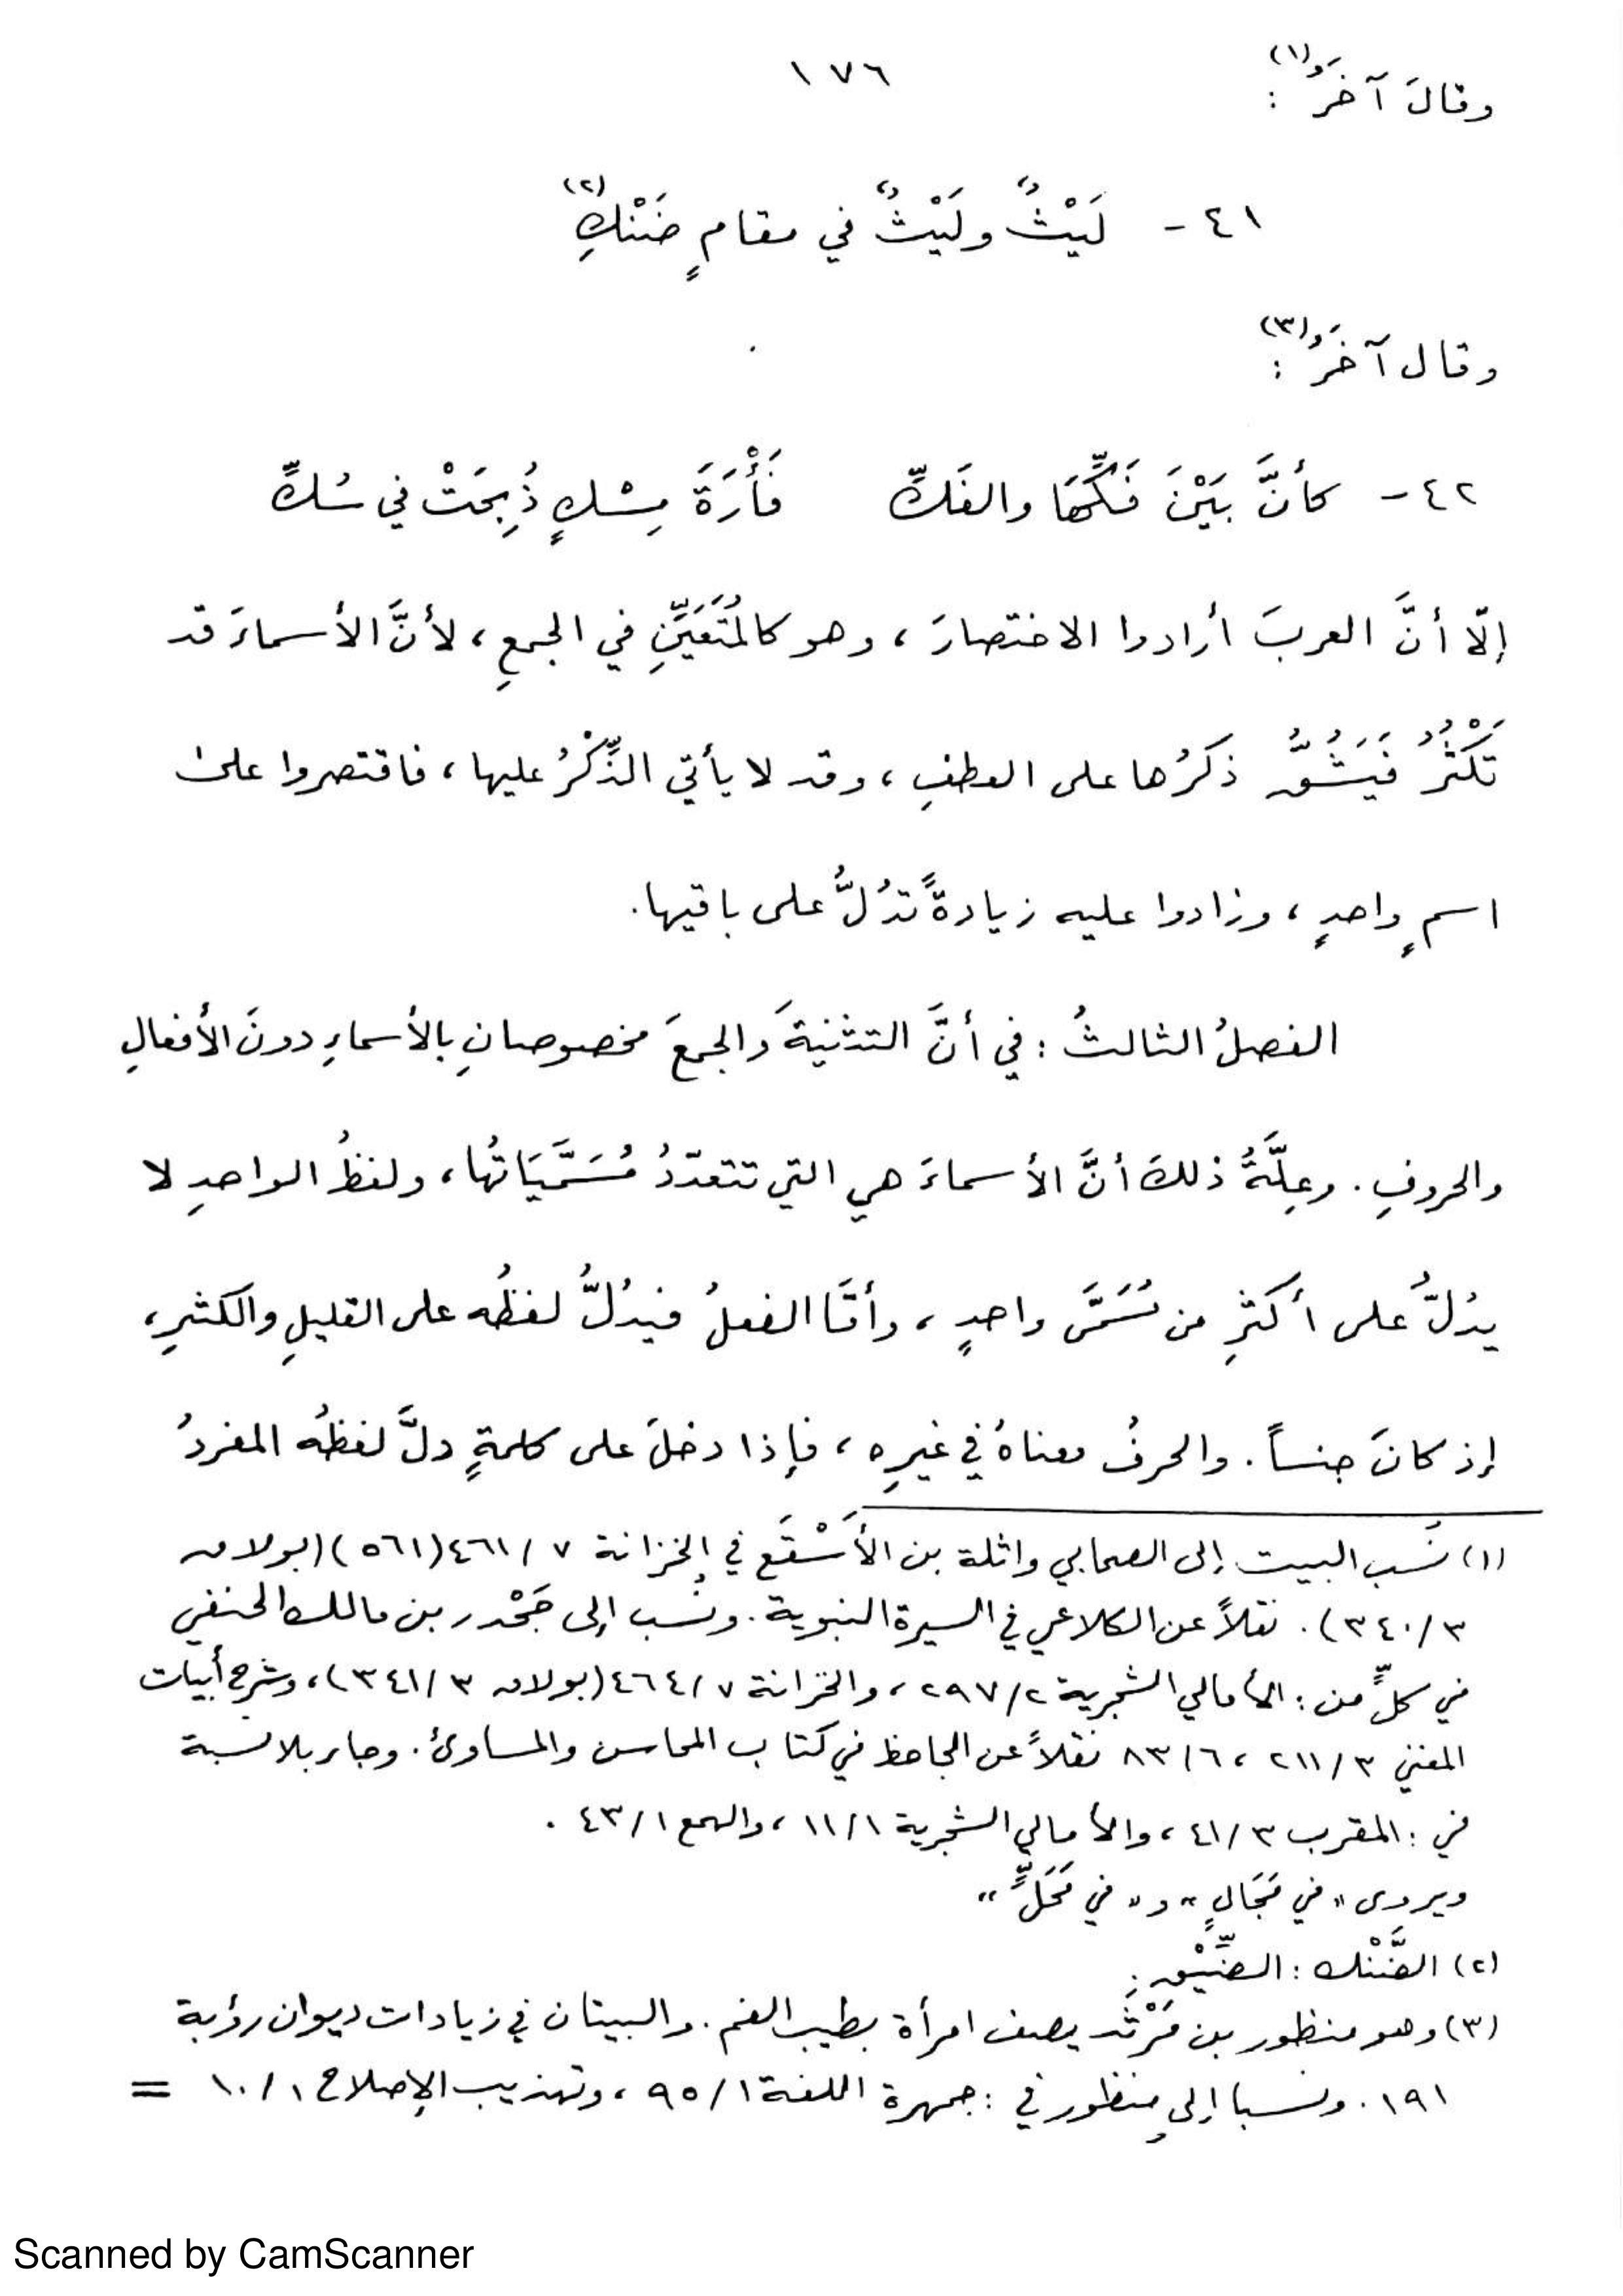 ١٧٦
وقالَ آخرُ(١) :
٤١ – لَيْثٌ ولَيْثٌ في مقامٍ ضَنْكِ(٢)
وقال آخَرُ(٣) :
٤٢ – كأنَّ بَيْنَ فَكِّهَا والفَكِّ فَأْرَةَ مِسْكٍ ذُبِحَتْ في سُكِّ
إلّا أنَّ العربَ أرادوا الاختصارَ ، وهو كالمُتَعَيِّنِ في الجمعِ ، لأنَّ الأسماءَ قد
تَكْثُرُ فَيَشُقُّ ذكرُها على العطفِ ، وقد لا يأتي الذِّكْرُ عليها ، فاقتصروا على
اسمٍ واحدٍ ، وزادوا عليه زيادةً تدُلُّ على باقيها.
الفصلُ الثالثُ : في أنَّ التثنيةَ والجمعَ مخصوصانِ بالأسماءِ دونَ الأفعالِ
والحروفِ . وعِلَّةُ ذلكَ أنَّ الأسماءَ هي التي تتعدّدُ مُسَمَّيَاتُها ، ولفظُ الواحدِ لا
يدُلُّ على أكثرِ من مُسَمَّى واحدٍ ، وأمَّا الفعلُ فيدُلُّ لفظُه على القليلِ والكثيرِ ،
إذ كانَ جنساً . والحرفُ معناهُ في غيرِه ، فإذا دخلَ على كلمةٍ دلَّ لفظُه المفردُ
(١) نُسب البيت إلى الصحابي واثلة بن الأَسْقَع في الخزانة ٧/ ٤٦١(٥٦١) (بولاق
٣/ ٣٤٠) . نقلاً عن الكلاعي في السيرة النبوية . ونُسب إلى جَحْدر بن مالك الحنفي
في كلٍّ من : الأمالي الشجرية ٢/ ٢٩٧ ، والخزانة ٧/ ٤٦٤ (بولاق ٣/ ٣٤١) ، وشرح أبيات
المغني ٣/ ٢١١ ، ٦/ ٨٣ نقلاً عن الجاحظ في كتاب المحاسن والمساوئ . وجاء بلا نسبة
في : المقرب ٣/ ٤١ ، والأمالي الشجرية ١/ ١١ ، والهمع ١/ ٤٣ .
ويروى " في مَجَالٍ " و " في مَحَلٍّ "
(٢) الضَّنْك : الضِّيْق .
(٣) وهو منظور بن مَرْثَد يصف امرأة بطيب الفم . والبيتان في زيادات ديوان رؤبة
١٩١ . ونسبا إلى منظور في : جمهرة اللغة ١/ ٩٥ ، وتهذيب الإصلاح ١/ ١٠ =
Scanned by CamScanner